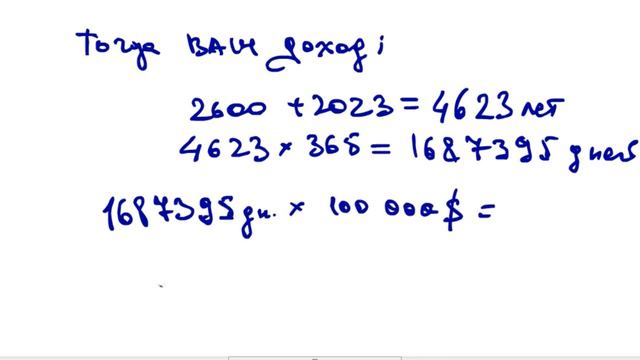 Тогда ВАШ доход:
2600 + 2023 = 4623 лет
4623 × 365 = 1687395 дней
1687395 дн. × 100 000 $ =